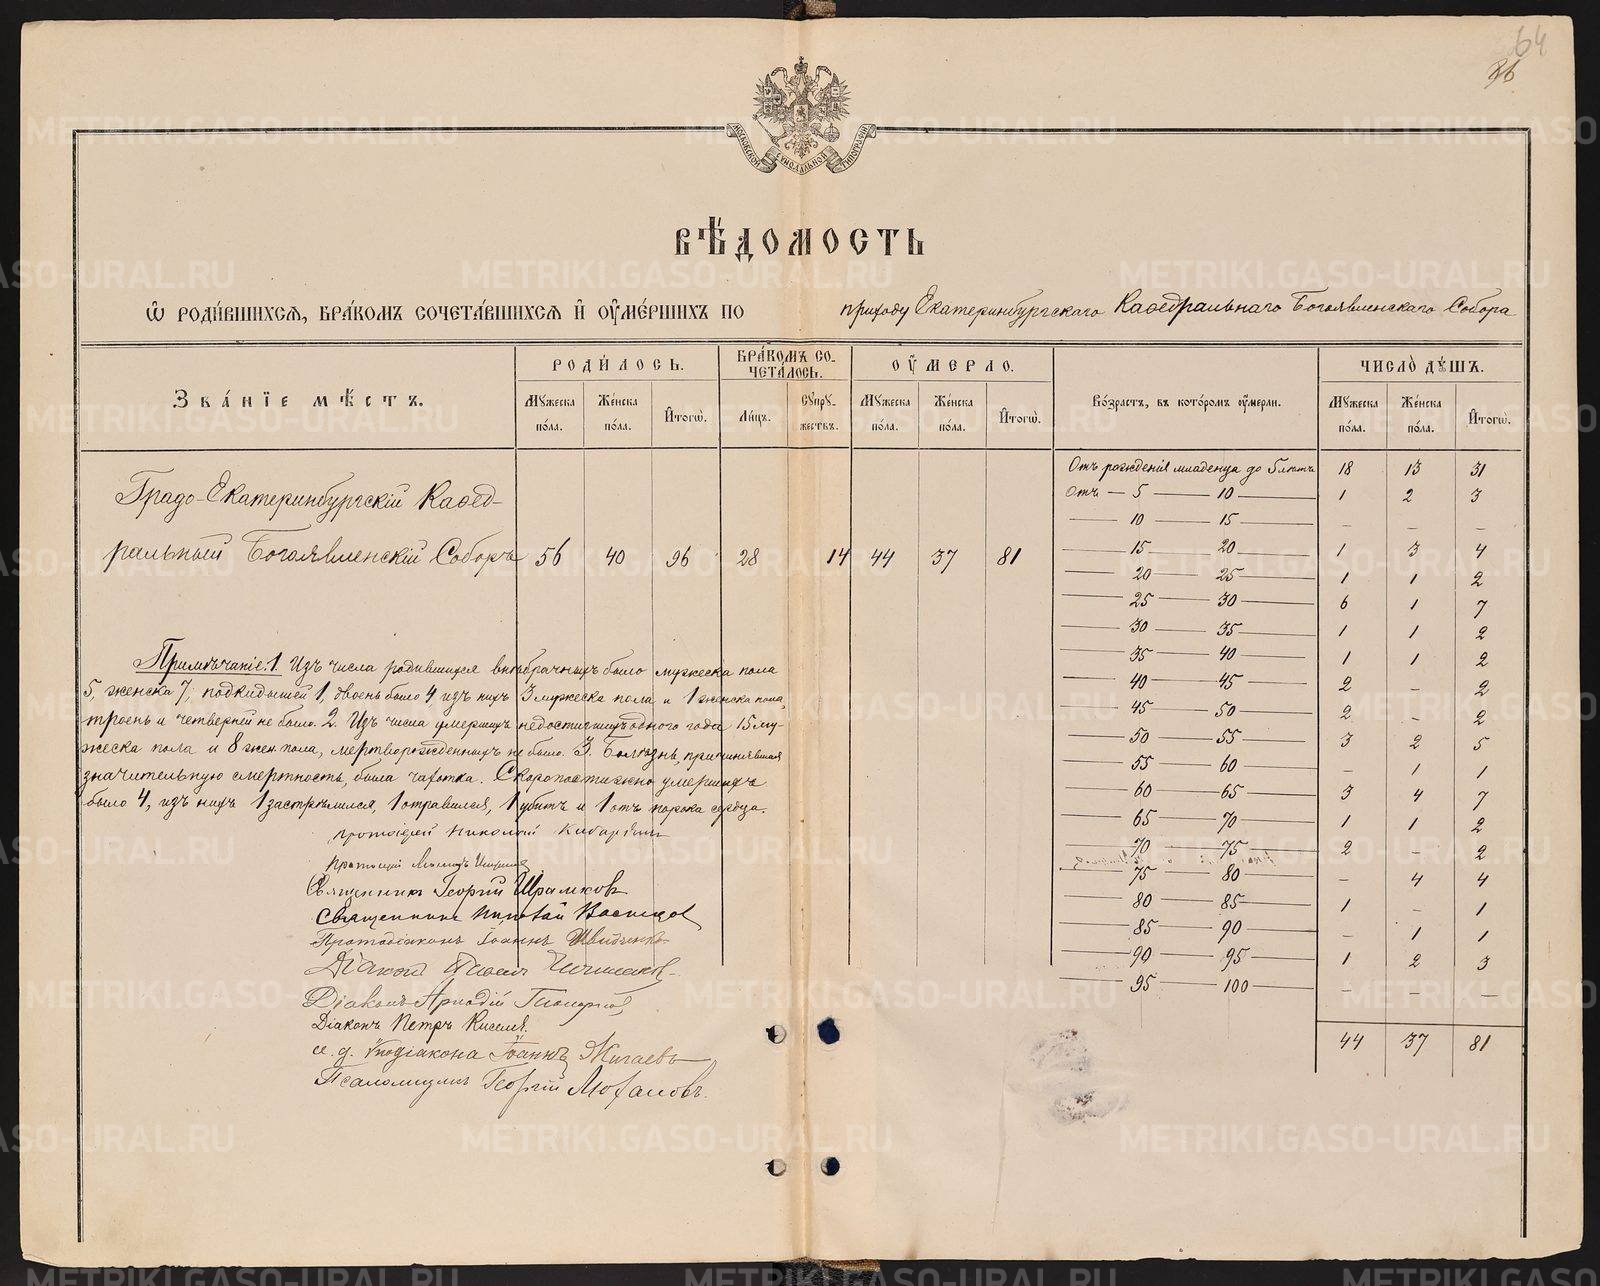 64
36
METRIKI.GASO-URAL.RU
МОСКОВСКОЙ СѴНОДАЛЬНОЙ ТИПОГРАФІИ
ВѢДОМОСТЬ
Ѡ РОДИ́ВШИХСѦ, БРА́КОМЪ СОЧЕТА́ВШИХСѦ И҆ ОУ҆МЕ́РШИХЪ ПО приходу Екатеринбургскаго Каѳедральнаго Богоявленскаго Собора
ЗВА́НЇЕ МѢ́СТЪ.
РОДИ́ЛОСЬ.
БРА́КОМЪ СО-
ЧЕТА́ЛОСЬ.
ОУ҆́МЕРЛО.
Во́зрастъ, въ кото́ромъ оу҆́мерли.
ЧИСЛО̀ ДꙊ́ШЪ.
Мꙋ́жеска по́ла.
Же́нска по́ла.
И҆тогѡ̀.
Ли́цъ.
Сꙋпрꙋ́-
жествъ.
Мꙋ́жеска по́ла.
Же́нска по́ла.
И҆тогѡ̀.
Мꙋ́жеска по́ла.
Же́нска по́ла.
И҆тогѡ̀.
Градо-Екатеринбургскій Каѳед-
ральный Богоявленскій Соборъ 56 40 96 28 14 44 37 81
Отъ рожденія младенца до 5 лѣтъ 18 13 31
Отъ — 5 — 10 — 1 2 3
— 10 — 15 — - - -
— 15 — 20 — 1 3 4
— 20 — 25 — 1 1 2
— 25 — 30 — 6 1 7
— 30 — 35 — 1 1 2
— 35 — 40 — 1 1 2
— 40 — 45 — 2 - 2
— 45 — 50 — 2 - 2
— 50 — 55 — 3 2 5
— 55 — 60 — - 1 1
— 60 — 65 — 3 4 7
— 65 — 70 — 1 1 2
— 70 — 75 — 2 - 2
— 75 — 80 — - 4 4
— 80 — 85 — 1 - 1
— 85 — 90 — - 1 1
— 90 — 95 — 1 2 3
— 95 — 100 — - - -
44 37 81
Примѣчаніе. 1 Изъ числа родившихся внѣбрачныхъ было мужеска пола
5, женска 7, подкидышей 1, двоень было 4, изъ нихъ 3 мужеска пола и 1 женска пола,
троень и четверней не было. 2. Изъ числа умершихъ недостигшихъ одного года 15 му-
жеска пола и 8 жен. пола, мертворожденныхъ не было. 3. Болѣзнь, причинявшая
значительную смертность, была чахотка. Скоропостижно умершихъ
было 4, изъ нихъ 1 застрѣлился, 1 отравился, 1 убитъ и 1 отъ порока сердца.
Протоіерей Николай
Протоіерей
Священникъ Георгій Шрамковъ
Священникъ
Протодіаконъ Іоаннъ
Діаконъ
Діаконъ Аркадій
Діаконъ Петръ Киселевъ
и. д. Иподіакона Іоаннъ Жигаевъ
Псаломщикъ Георгій Люхановъ.